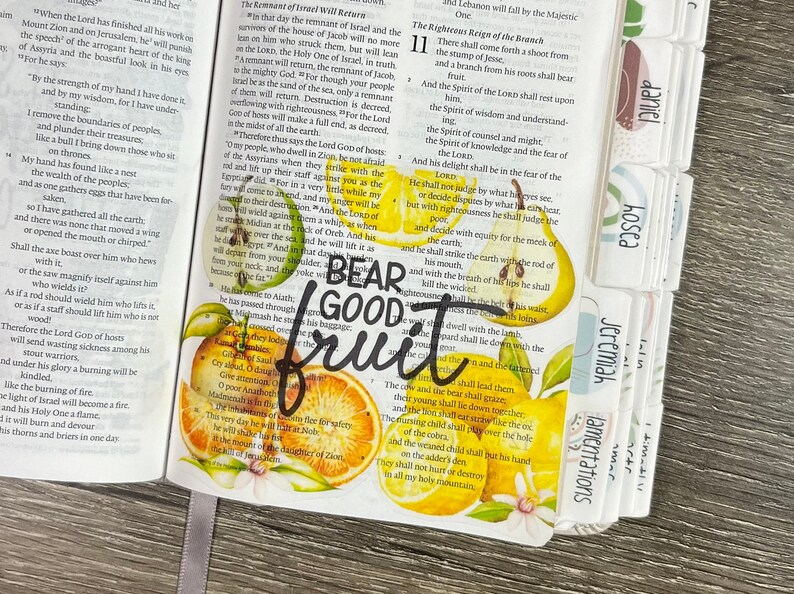 images?"
12"When the Lord has finished all his work on
Mount Zion and on Jerusalem, he will punish
the speech of the arrogant heart of the king
of Assyria and the boastful look in his eyes.
13 For he says:
"By the strength of my hand I have done it,
and by my wisdom, for I have under-
standing;
I remove the boundaries of peoples,
and plunder their treasures;
like a bull I bring down those who sit
on thrones.
14 My hand has found like a nest
the wealth of the peoples;
and as one gathers eggs that have been for-
saken,
so I have gathered all the earth;
and there was none that moved a wing
or opened the mouth or chirped."
Shall the axe boast over him who hews
with it,
or the saw magnify itself against him
who wields it?
As if a rod should wield him who lifts it,
or as if a staff should lift him who is not
wood!
Therefore the Lord GOD of hosts
will send wasting sickness among his
stout warriors,
and under his glory a burning will be
kindled,
like the burning of fire.
The light of Israel will become a fire,
and his Holy One a flame,
and it will burn and devour
his thorns and briers in one day.
The Remnant of Israel Will Return
20 In that day the remnant of Israel and the
survivors of the house of Jacob will no more
lean on him who struck them, but will lean
on the LORD, the Holy One of Israel, in truth.
A remnant will return, the remnant of Jacob,
to the mighty God. 22 For though your people
Israel be as the sand of the sea, only a remnant
of them will return. Destruction is decreed,
overflowing with righteousness. 23 For the Lord
GOD of hosts will make a full end, as decreed,
in the midst of all the earth.
24 Therefore thus says the Lord GOD of hosts:
"O my people, who dwell in Zion, be not afraid
of the Assyrians when they strike with the
rod and lift up their staff against you as the
Egyptians did. 25 For in a very little while my
fury will come to an end, and my anger will be
hosts will wield against them a whip, as when
he struck Midian at the rock of Oreb. And his
staff will be over the sea, and he will lift it as
he did in Egypt. 27 And in that day his burden
will depart from your shoulder, and his yoke
from your neck; and the yoke will be broken
because of the fat."
He has come to Aiath;
he has passed through Migron;
at Michmash he stores his baggage;
they have crossed over the pass;
at Geba they lodge for the night;
Ramah trembles;
Gibeah of Saul has fled.
Cry aloud, O daughter of Gallim!
Give attention, O Laishah!
O poor Anathoth!
Madmenah is in flight;
the inhabitants of Gebim flee for safety.
This very day he will halt at Nob;
he will shake his fist
at the mount of the daughter of Zion,
the hill of Jerusalem.
and Lebanon will fall by the Majestic
One.
The Righteous Reign of the Branch
11 There shall come forth a shoot from
the stump of Jesse,
and a branch from his roots shall bear
fruit.
2 And the Spirit of the LORD shall rest upon
him,
the Spirit of wisdom and understand-
ing,
the Spirit of counsel and might,
the Spirit of knowledge and the fear of
the LORD.
3 And his delight shall be in the fear of the
LORD.
He shall not judge by what his eyes see,
or decide disputes by what his ears hear,
but with righteousness he shall judge the
poor,
and decide with equity for the meek of
the earth;
and he shall strike the earth with the rod of
his mouth,
and with the breath of his lips he shall
kill the wicked.
Righteousness shall be the belt of his waist,
and faithfulness the belt of his loins.
The wolf shall dwell with the lamb,
and the leopard shall lie down with the
young goat,
and the calf and the lion and the fattened
calf together;
and a little child shall lead them.
7 The cow and the bear shall graze;
their young shall lie down together;
and the lion shall eat straw like the ox.
The nursing child shall play over the hole
of the cobra,
and the weaned child shall put his hand
on the adder's den.
They shall not hurt or destroy
in all my holy mountain;
BEAR
GOOD
fruit
daniel
hosea
Jeremiah
Lamentations